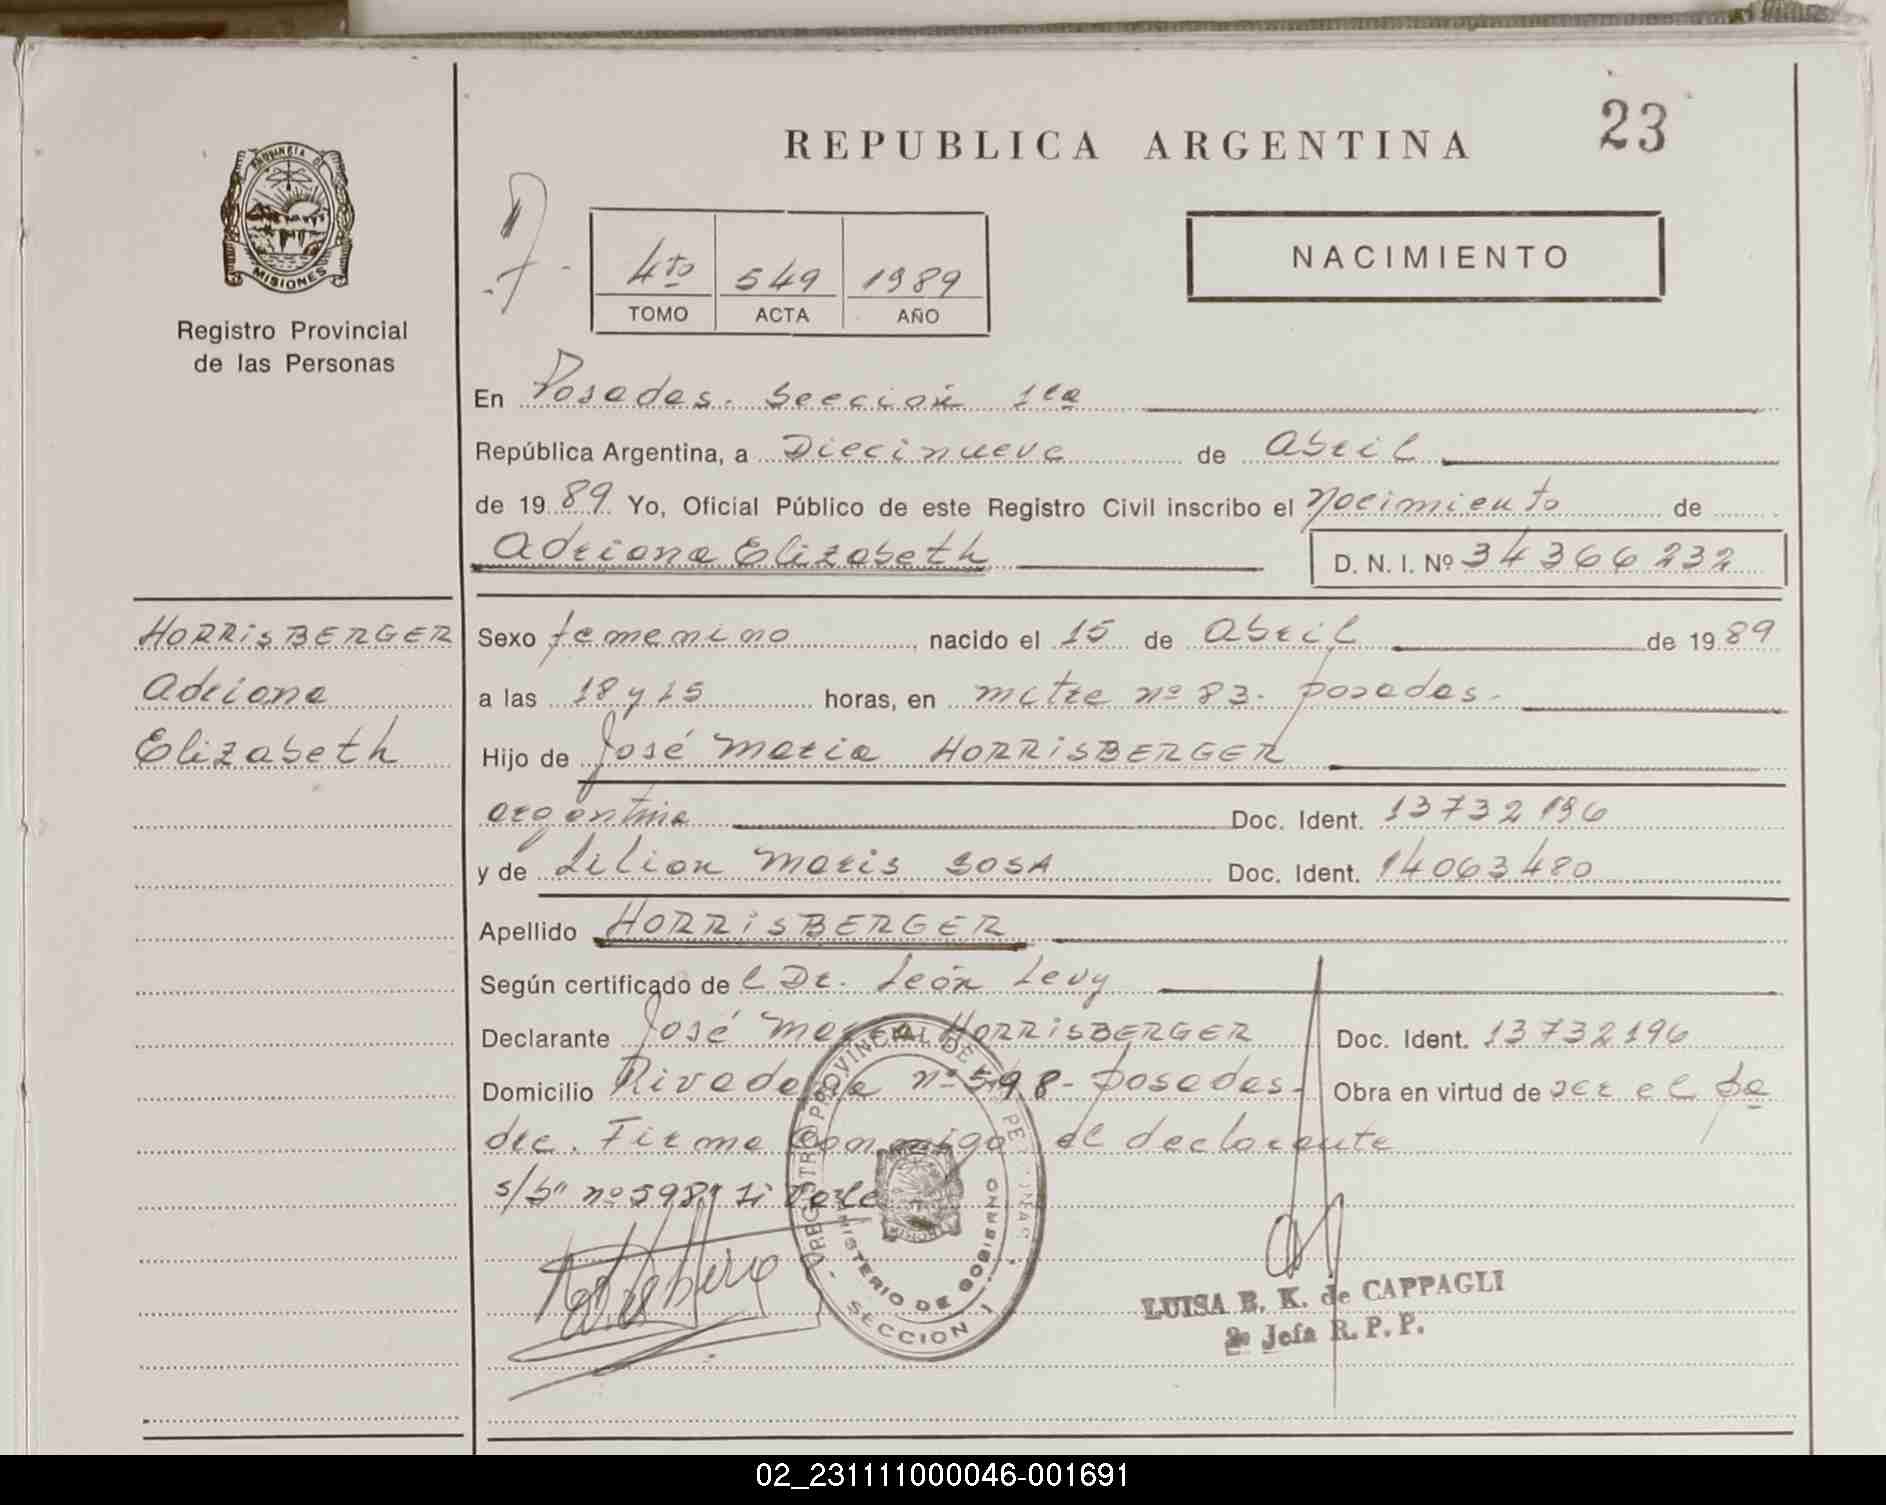 REPUBLICA ARGENTINA
23
PROVINCIA DE
MISIONES
Registro Provincial
de las Personas
4to 549 1989
TOMO ACTA AÑO
NACIMIENTO
En Posadas. Sección 1ra
República Argentina, a Diecinueve de Abril
de 1989 Yo, Oficial Público de este Registro Civil inscribo el Nacimiento de
Adriana Elizabeth D. N. I. Nº 34366232
HORRISBERGER
Adriana
Elizabeth
Sexo femenino, nacido el 15 de Abril de 1989
a las 18 y 15 horas, en mitre nº 83. posadas.
Hijo de José Maria HORRISBERGER
argentina Doc. Ident. 13732196
y de Lilian Maris SOSA Doc. Ident. 14063480
Apellido HORRISBERGER
Según certificado de l Dr. León Levy
Declarante José Maria HORRISBERGER Doc. Ident. 13732196
Domicilio Rivadavia nº 598- posadas- Obra en virtud de ser el pa
dre. Firma conmigo el declarante
s/b" nº 598,
REGISTRO PROVINCIAL DE
MINISTERIO DE GOBIERNO
SECCION 1
LUISA B. K. de CAPPAGLI
2º Jefa R. P. P.
02_231111000046-001691